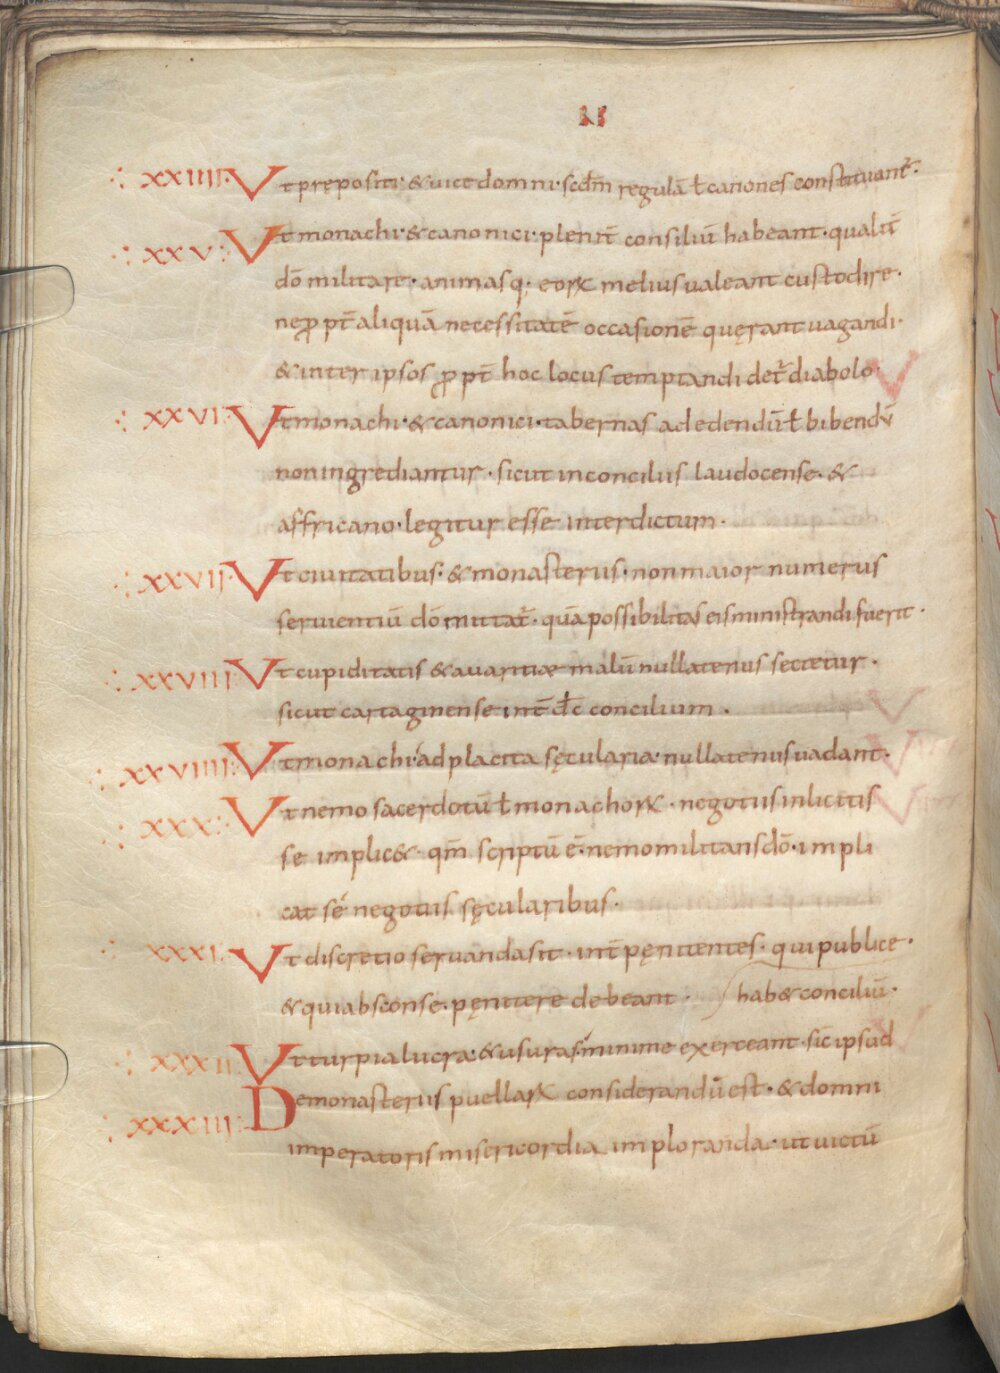 XXIIII. Ut prępositi· & uicedomni· scdm̄ regulā ł canones constituant̄·
XXV· Ut monachi· & canonici· plenit̄ consiliū habeant· qualit̄
dō militare· animasq; eorꝝ melius ualeant custodire·
ne ꝓpt̄ aliquā necessitatē occasionē quęrant uagandi·
& inter ipsos ꝓpt̄ hoc locus temptandi det̄ diabolo·
XXVI· Ut monachi· & canonici· tabernas ad edendū ł bibendū
non ingrediantur· sicut in conciliis laudocense· &
affricano· legitur esse interdictum·
XXVII· Ut ciuitatibus· & monasteriis· non maior numerus
seruientiū dō mittat̄· quā possibilitas eis ministrandi fuerit·
XXVIII Ut cupiditatis & auaritiae malū nullatenus sectetur·
sicut cartaginense int̄ đc concilium·
XXVIIII· Ut monachi· ad placita sęcularia· nullatenus uadant·
XXX· Ut nemo sacerdotū ł monachorꝝ· negotiis inlicitis
se implic&· qm̄ scriptū ē· nemo militans dō· impli
cat sé negotiis sęcularibus·
XXXI· Ut discretio seruanda sit· int̄ pęnitentes· qui publice·
& qui absconse· pęnitere debeant· hab& conciliū·
XXXII Ut turpia lucra· & usuras minime exerceant· sic ipsud
XXXIII· De monasteriis puellarꝝ considerandū est· & domni
imperatoris misericordia imploranda· ut uictū